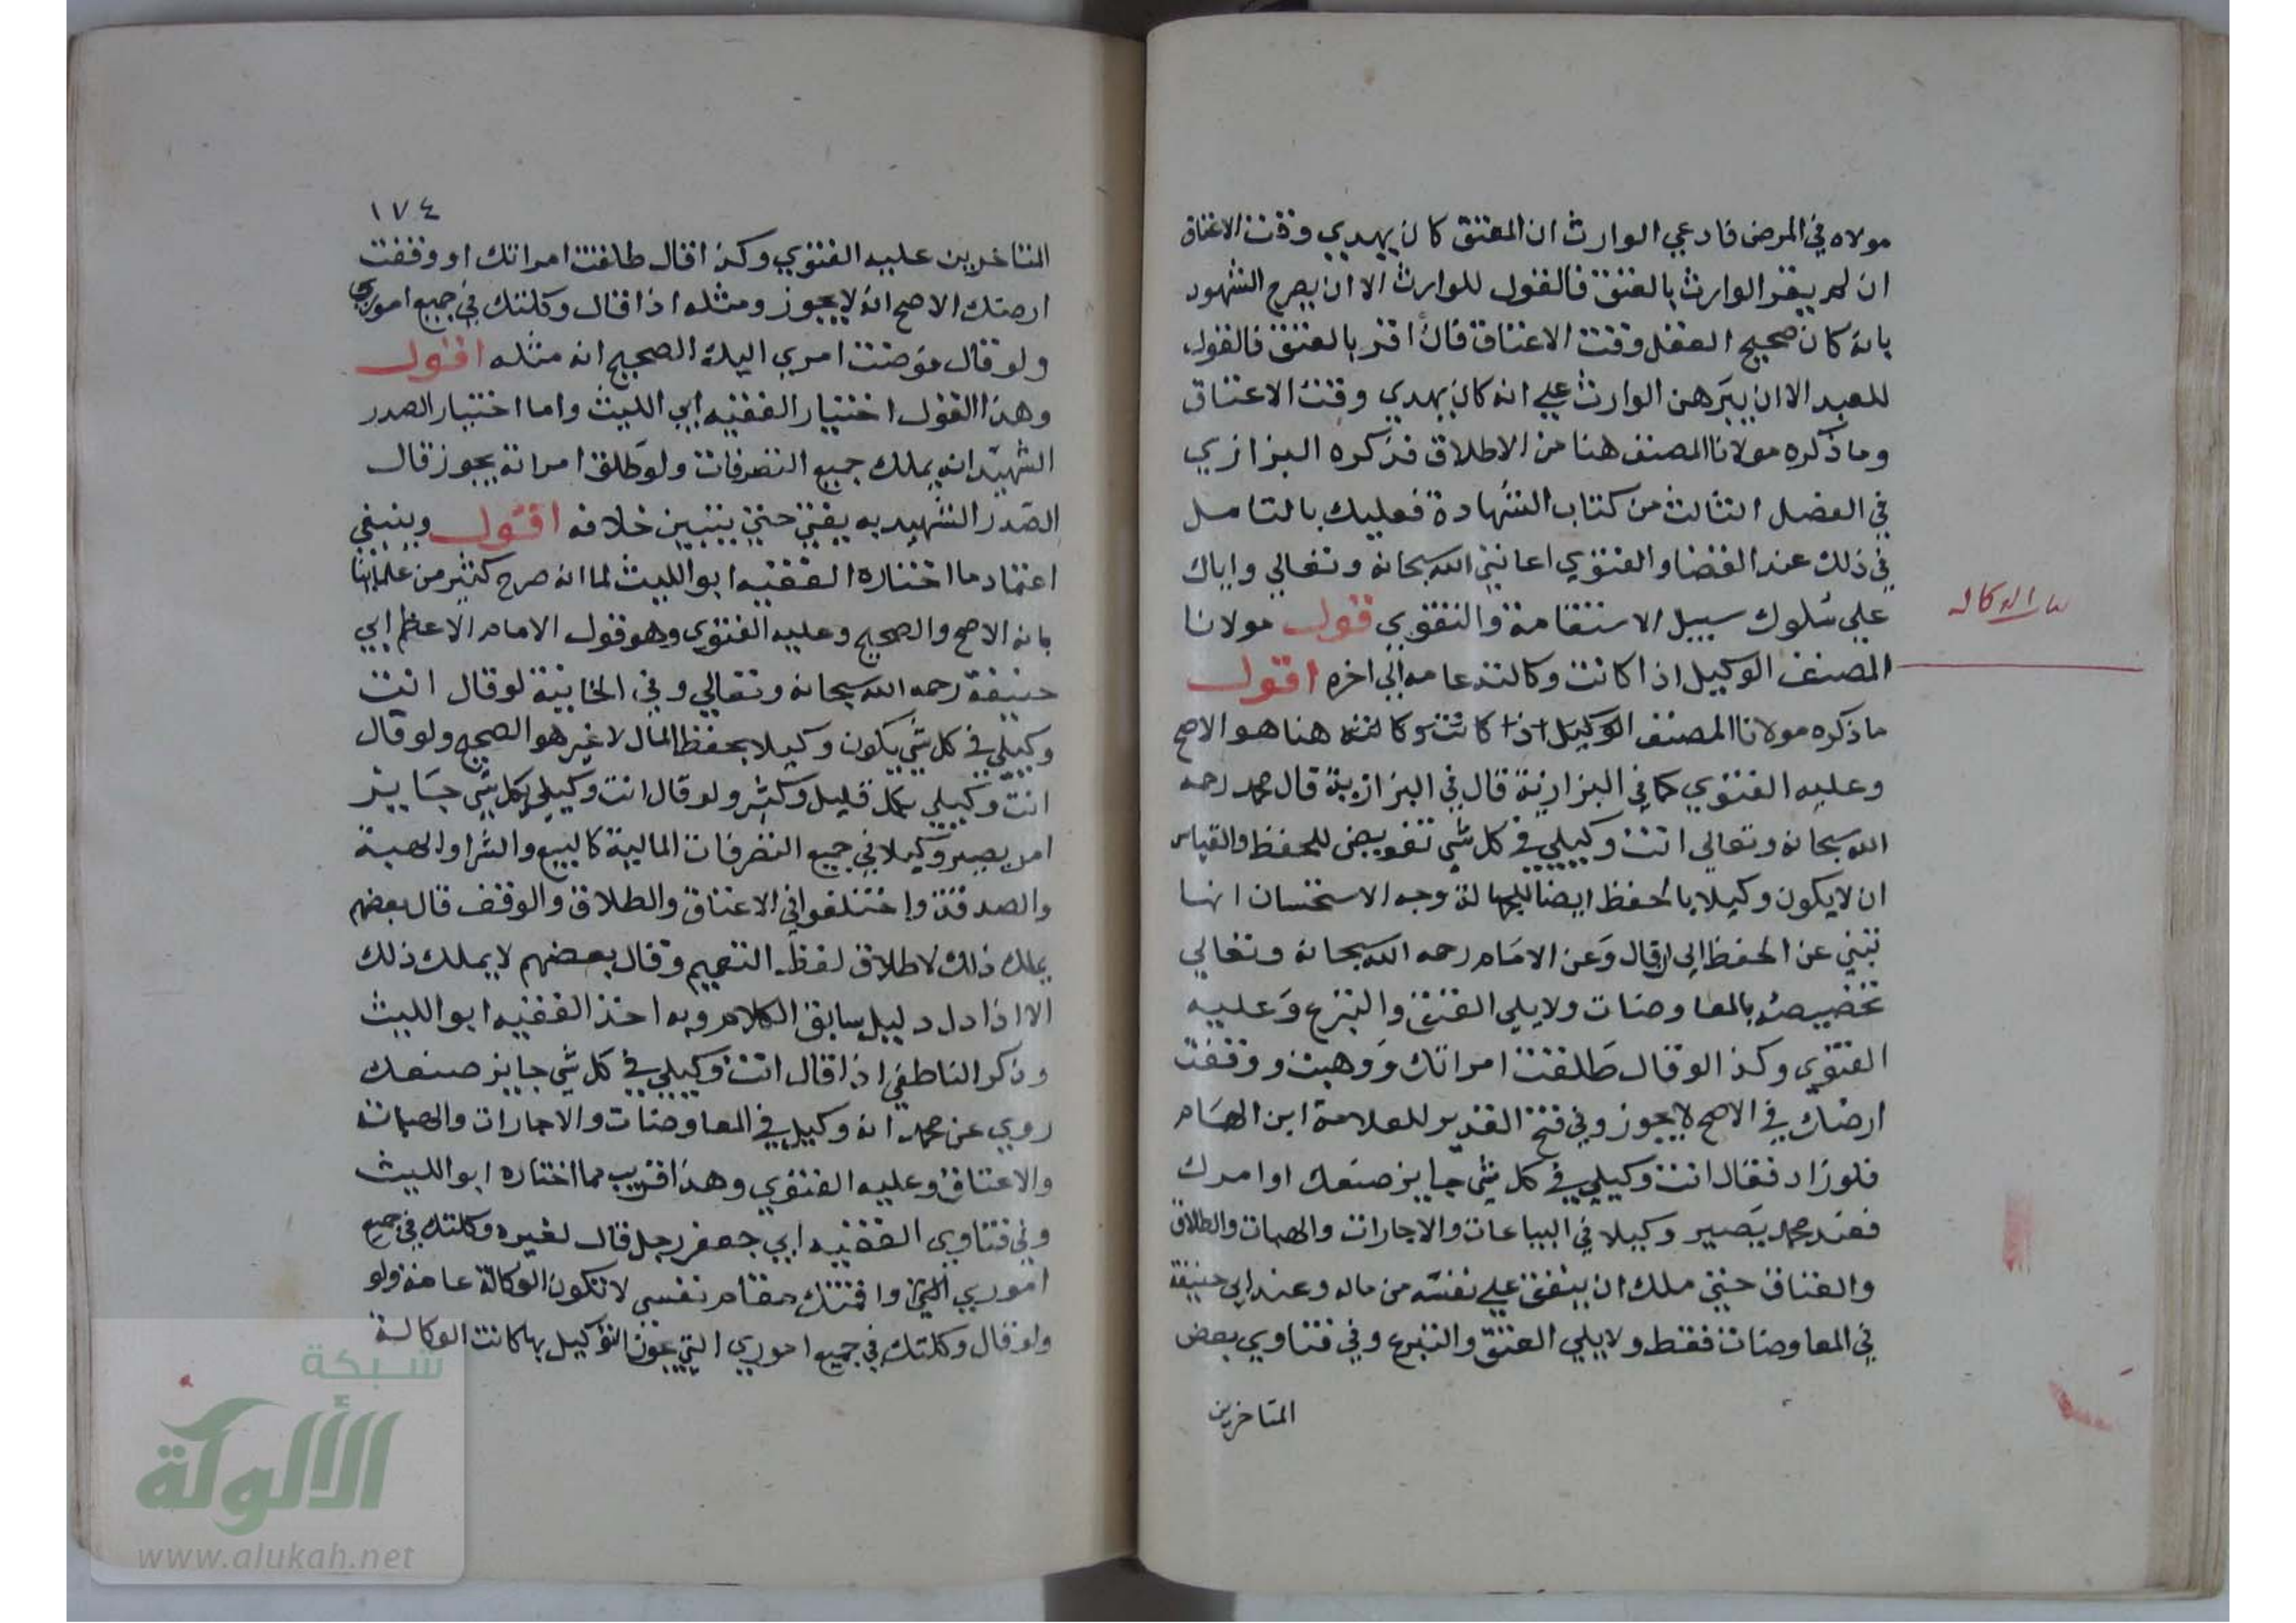 مولاه في المرض فادعي الوارث ان المعتق كان يهدي وقت الاعتاق
ان لم يقر الوارث بالعتق فالقول للوارث الا ان يصرح الشهود
بانه كان صحيح العقل وقت الاعتاق فان اقر بالعتق فالقول
للعبد الا ان يبرهن الوارث علي انه كان يهدي وقت الاعتاق
وما ذكره مولانا المصنف هنا من الاطلاق فذكره البزازي
في الفصل الثالث من كتاب الشهادة فعليك بالتامل
في ذلك عند القضا والفتوي اعانني الله سبحانه وتعالي واياك
علي سلوك سبيل الاستقامة والتقوي قول مولانا
المصنف الوكيل اذا كانت وكالته عامه الي اخره اقول
ما ذكره مولانا المصنف الوكيل اذا كانت وكالته هنا هو الاصح
وعليه الفتوي كما في البزازية قال في البزازية قال محمد رحمه
الله سبحانه وتعالي انت وكيلي في كل شي تفويض للحفظ والقياس
ان لا يكون وكيلا بالحفظ ايضا للجهالة وجه الاستحسان انها
تنبي عن الحفظ الي ان قال وعن الامام رحمه الله سبحانه وتعالي
تخصيصه بالمعاوضات ولا يلي العتق والتبرع وعليه
الفتوي وكذا لو قال طلقت امراتك ووهبت ووقفت
ارضك في الاصح لا يجوز وفي فتح القدير للعلامة ابن الهمام
فلو زاد فقال انت وكيلي في كل شي جايز صنعك او امرك
فعند محمد يصير وكيلا في البياعات والاجارات والهبات والطلاق
والعتاق حتي ملك ان ينفق علي نفسه من ماله وعند ابي حنيفة
في المعاوضات فقط ولا يلي العتق والتبرع وفي فتاوي بعض
المتاخرين
١٧٤
المتاخرين عليه الفتوي وكذا قال طلقت امراتك او وقفت
ارضك الاصح انه لا يجوز ومثله اذا قال وكلتك في جميع اموري
ولو قال فوضت امري اليك الصحيح انه مثله اقول
وهذا القول اختيار الفقيه ابي الليث واما اختيار الصدر
الشهيد انه يملك جميع التصرفات ولو طلق امراته يجوز قال
الصدر الشهيد به يفتي حتي يتبين خلافه اقول وينبغي
اعتماد ما اختاره الفقيه ابو الليث لما انه صرح كثير من علمائنا
بانه الاصح والصحيح وعليه الفتوي وهو قول الامام الاعظم ابي
حنيفة رحمه الله سبحانه وتعالي وفي الخانية لو قال انت
وكيلي في كل شي يكون وكيلا بحفظ المال لا غير هو الصحيح ولو قال
انت وكيلي بكل قليل وكثير ولو قال انت وكيلي بكل شي جايز
امر يصير وكيلا في جميع التصرفات المالية كالبيع والشرا والهبة
والصدقة واختلفوا في الاعتاق والطلاق والوقف قال بعضهم
يملك ذلك لاطلاق لفظ التعميم وقال بعضهم لا يملك ذلك
الا اذا دل دليل سابق الكلام وبه اخذ الفقيه ابو الليث
وذكر الناطفي اذا قال انت وكيلي في كل شي جايز صنعك
روي عن محمد انه وكيل في المعاوضات والاجارات والهبات
والاعتاق وعليه الفتوي وهذا قريب مما اختاره ابو الليث
وفي فتاوي الفقيه ابي جعفر رجل قال لغيره وكلتك في جميع
اموري التي واقمتك مقام نفسي لا تكون الوكالة عامة ولو
ولو قال وكلتك في جميع اموري التي يجوز التوكيل بها كانت الوكالة
شبكة
الألوكة
www.alukah.net